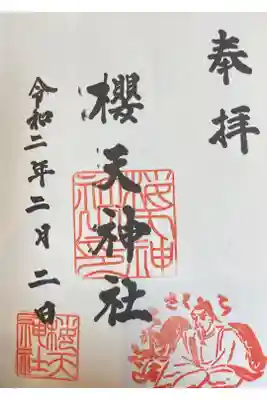 奉拝
櫻天神社
令和二年二月二日
さくら
櫻天神